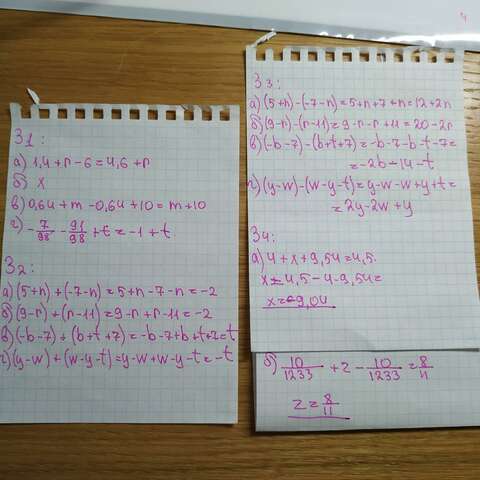 31:
а) 1,4 + r - 6 = 4,6 + r
б) x
в) 0,64 + m - 0,64 + 10 = m + 10
г) - 7/98 - 91/98 + t = -1 + t
32:
а) (5+n) + (-7-n) = 5+n-7-n = -2
б) (9-r) + (r-11) = 9-r+r-11 = -2
в) (-b-7) + (b+t+7) = -b-7+b+t+7 = t
г) (y-w) + (w-y-t) = y-w+w-y-t = -t
33:
а) (5+n) - (-7-n) = 5+n+7+n = 12+2n
б) (9-r) - (r-11) = 9-r-r+11 = 20-2r
в) (-b-7) - (b+t+7) = -b-7-b-t-7 =
= -2b-14-t
г) (y-w) - (w-y-t) = y-w-w+y+t =
= 2y-2w+y
34:
а) 4 + x + 9,54 = 4,5.
x = 4,5 - 4 - 9,54 =
x = -9,04
б) 10/1233 + z - 10/1233 = 8/11
z = 8/11